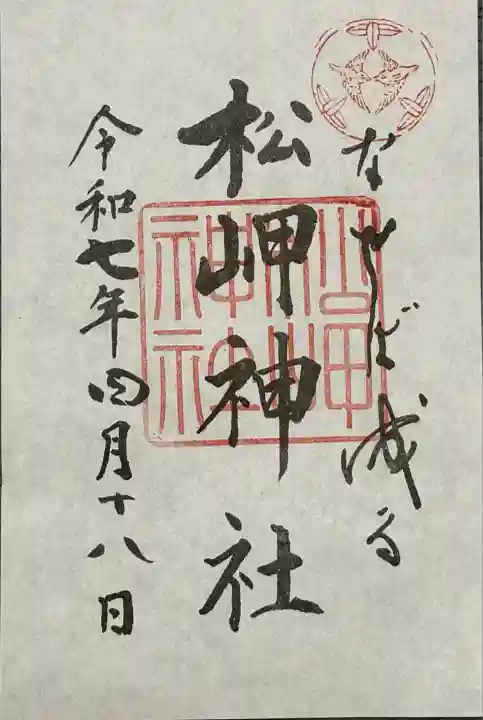 なせば成る
松岬神社
松岬神社
令和七年四月十八日